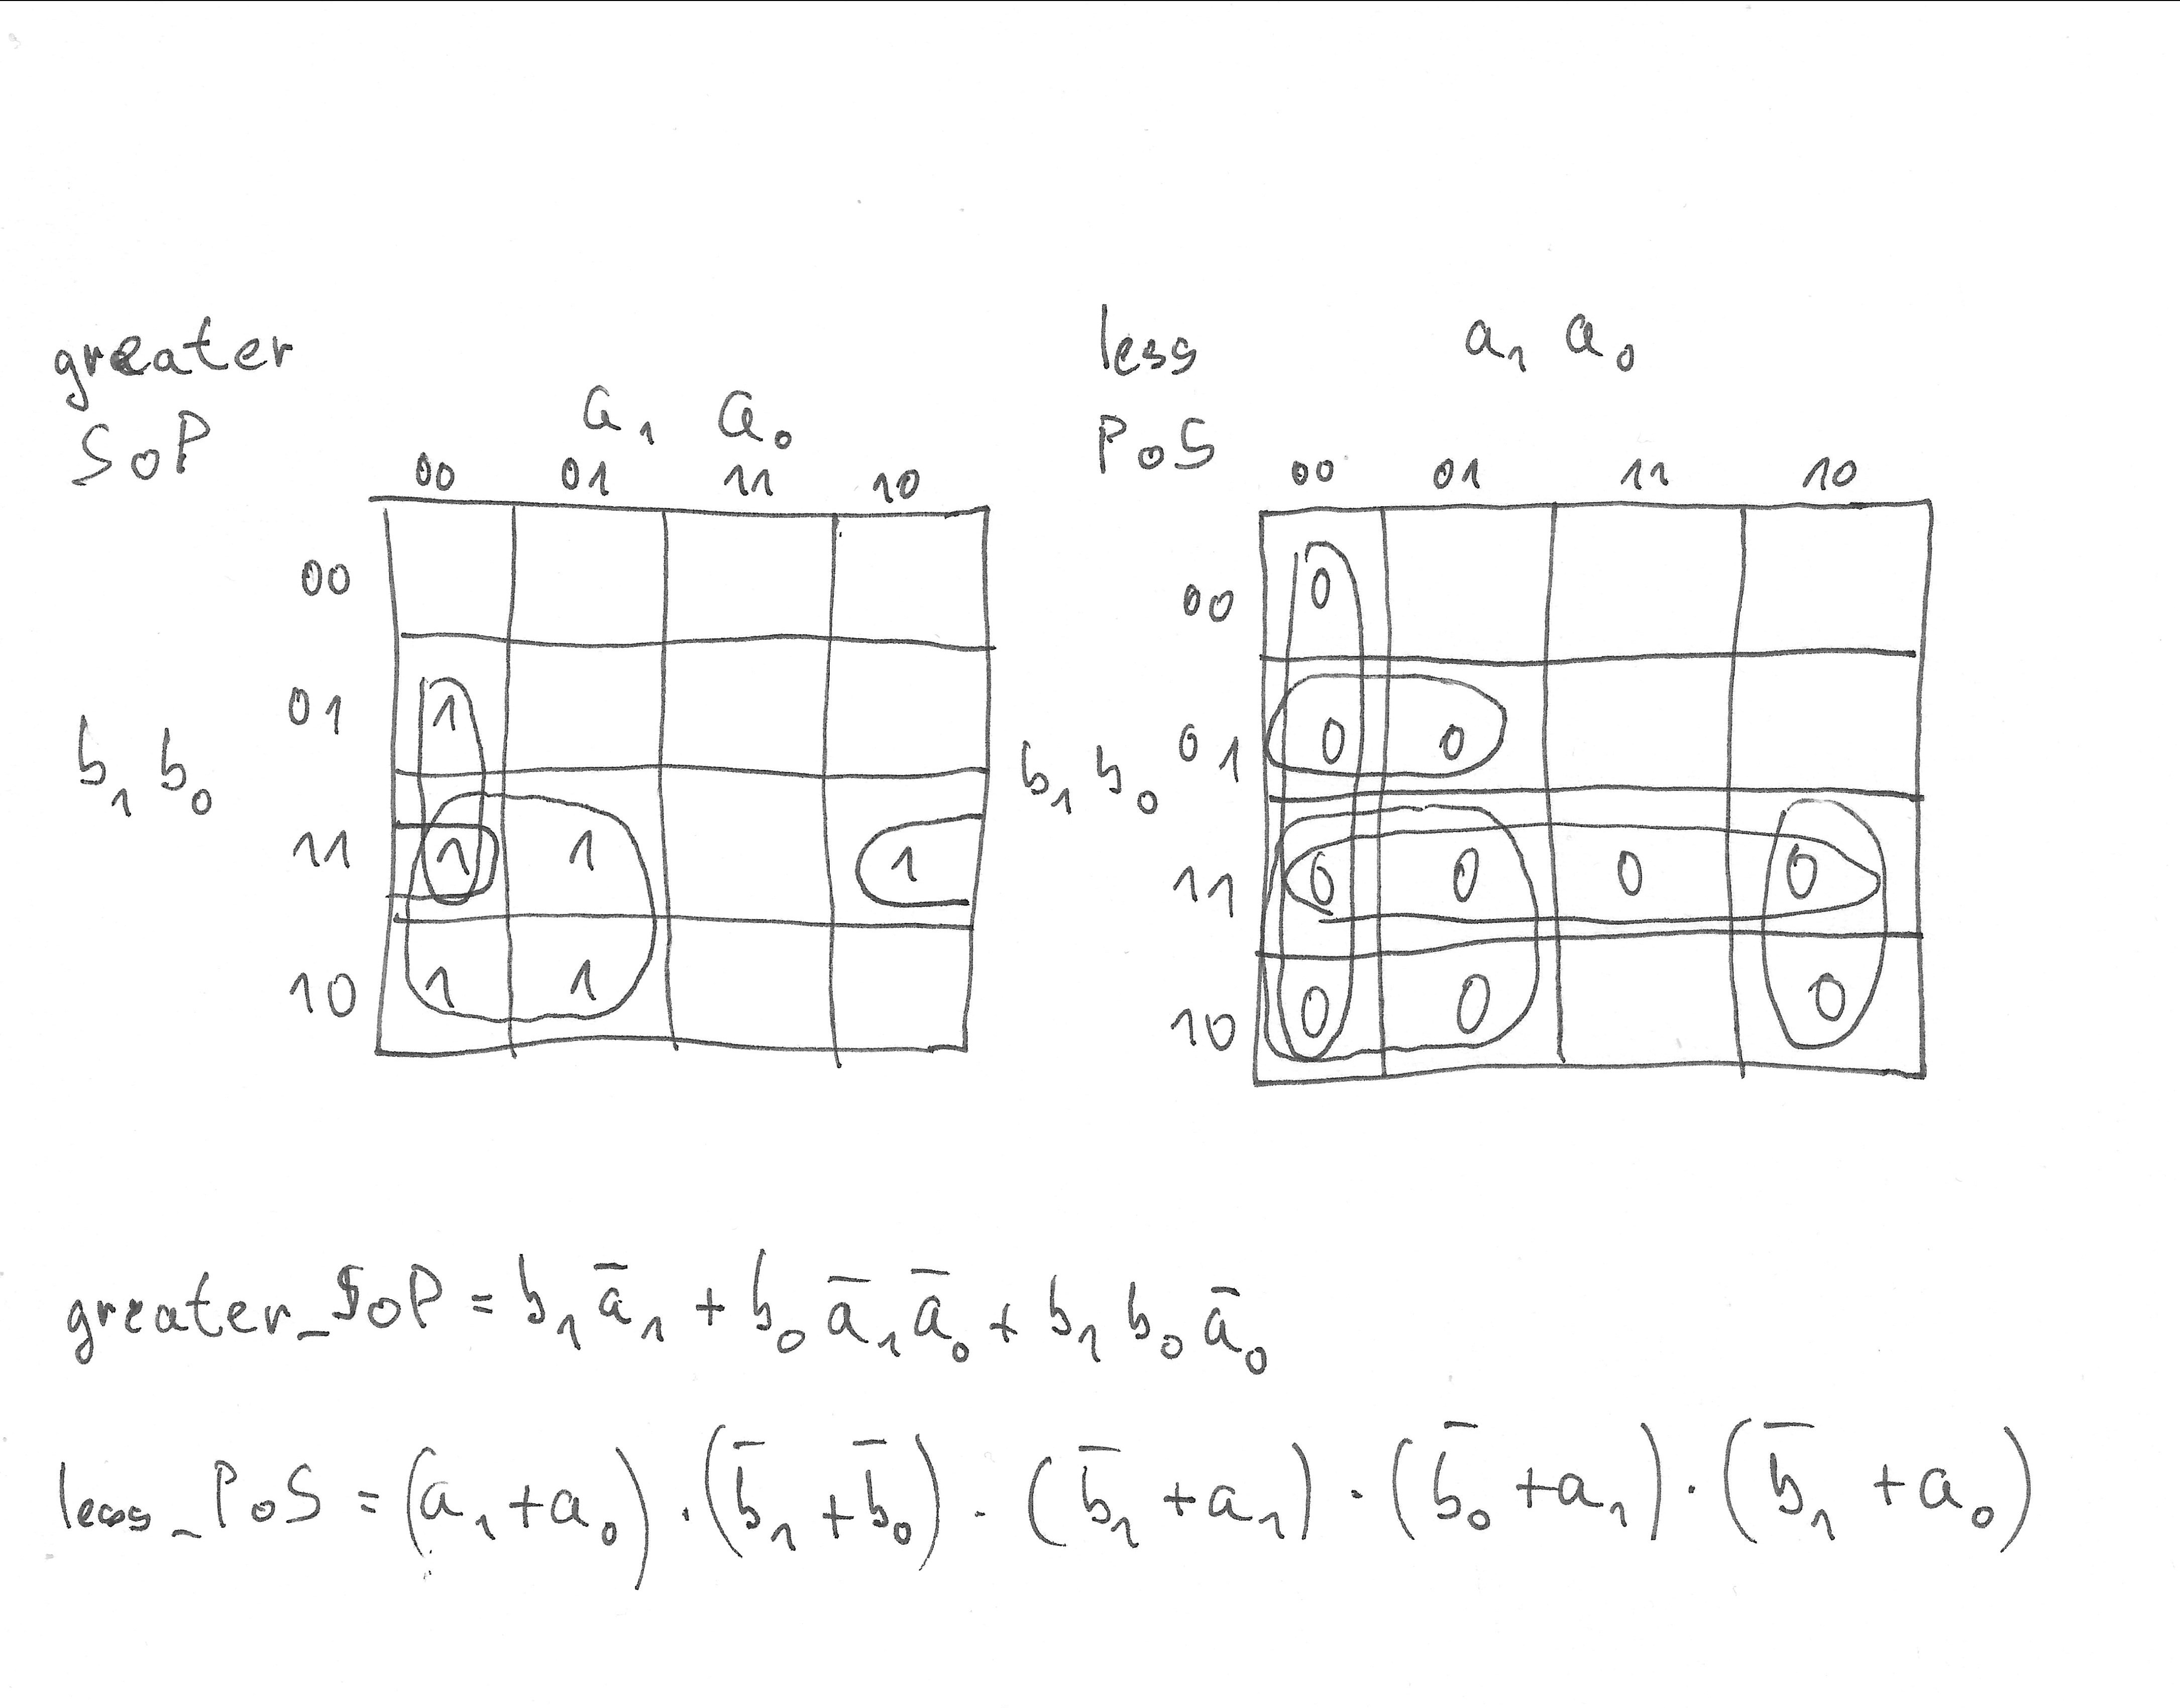 greater
SoP
a₁ a₀
00 01 11 10
00
01 1
b₁ b₀
11 1 1 1
10 1 1
less
PoS
a₁ a₀
00 01 11 10
00 0
01 0 0
b₁ b₀
11 0 0 0 0
10 0 0 0
greater_SoP = b₁ a̅₁ + b₀ a̅₁ a̅₀ + b₁ b₀ a̅₀
less_PoS = (a₁ + a₀) · (b̅₁ + b̅₀) · (b̅₁ + a₁) · (b̅₀ + a₁) · (b̅₁ + a₀)